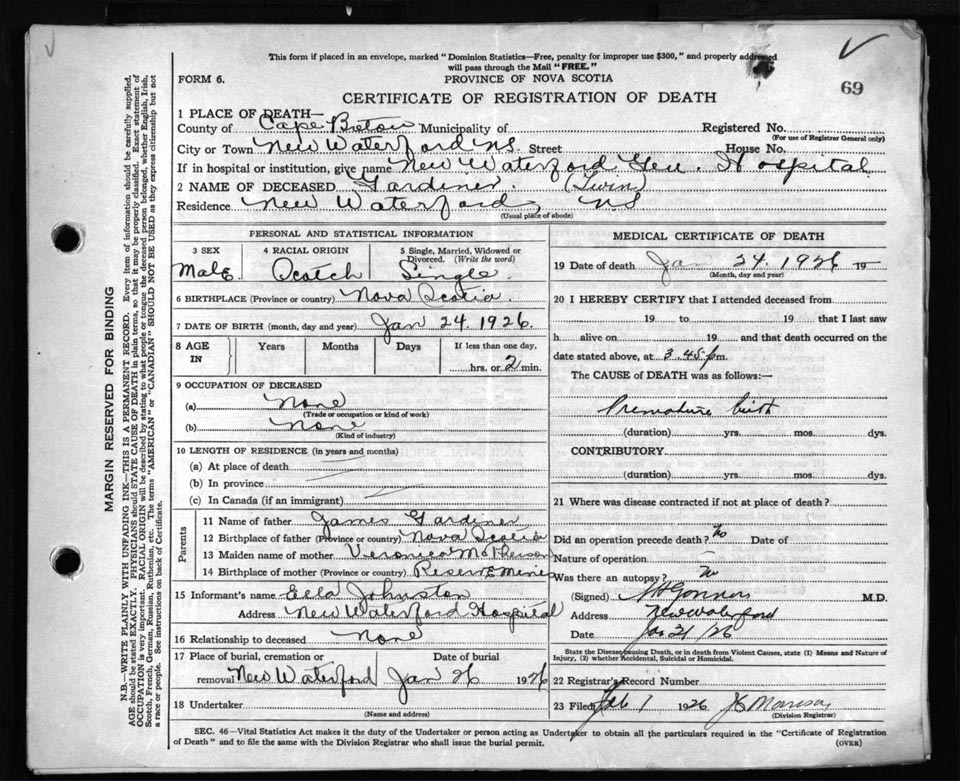 This form if placed in an envelope, marked "Dominion Statistics—Free, penalty for improper use $300," and properly addressed
will pass through the Mail "FREE."
FORM 6.
PROVINCE OF NOVA SCOTIA
69
CERTIFICATE OF REGISTRATION OF DEATH
1 PLACE OF DEATH—
County of Cape Breton Municipality of Registered No.
(For use of Registrar General only)
City or Town New Waterford NS. Street House No.
If in hospital or institution, give name New Waterford Gen. Hospital
2 NAME OF DECEASED Gardiner. (Twin)
Residence New Waterford, NS
(Usual place of abode)
PERSONAL AND STATISTICAL INFORMATION
3 SEX 4 RACIAL ORIGIN 5 Single, Married, Widowed or
Divorced. (Write the word)
Male. Scotch Single.
6 BIRTHPLACE (Province or country) Nova Scotia.
7 DATE OF BIRTH (month, day and year) Jan 24. 1926.
8 AGE IN Years Months Days If less than one day,
hrs. or 2 min.
9 OCCUPATION OF DECEASED
(a) None
(Trade or occupation or kind of work)
(b) None
(Kind of industry)
10 LENGTH OF RESIDENCE (in years and months)
(a) At place of death
(b) In province
(c) In Canada (if an immigrant)
Parents
11 Name of father James Gardiner
12 Birthplace of father (Province or country) Nova Scotia
13 Maiden name of mother Veronica McPherson
14 Birthplace of mother (Province or country) Reserve Mines
15 Informant's name Ella Johnston
Address New Waterford Hospital
16 Relationship to deceased None
17 Place of burial, cremation or Date of burial
removal New Waterford Jan 26 1926
18 Undertaker
(Name and address)
MEDICAL CERTIFICATE OF DEATH
19 Date of death Jan 24. 1926 19
(Month, day and year)
20 I HEREBY CERTIFY that I attended deceased from
19 to 19 that I last saw
h alive on 19 and that death occurred on the
date stated above, at 3.45 p m.
The CAUSE of DEATH was as follows:—
Premature birth
(duration) yrs. mos. dys.
CONTRIBUTORY
(duration) yrs. mos. dys.
21 Where was disease contracted if not at place of death?
Did an operation precede death? No Date of
Nature of operation
Was there an autopsy? No
(Signed) M.D.
Address New Waterford
Date Jan /26
State the Disease causing Death, or in death from Violent Causes, state (1) Means and Nature of
Injury, (2) whether Accidental, Suicidal or Homicidal.
22 Registrar's Record Number
23 Filed Feb 1 1926
(Division Registrar)
SEC. 46—Vital Statistics Act makes it the duty of the Undertaker or person acting as Undertaker to obtain all the particulars required in the "Certificate of Registration
of Death" and to file the same with the Division Registrar who shall issue the burial permit.
(OVER)
MARGIN RESERVED FOR BINDING
N.B.—WRITE PLAINLY WITH UNFADING INK—THIS IS A PERMANENT RECORD. Every item of information should be carefully supplied.
AGE should be stated EXACTLY. PHYSICIANS should STATE CAUSE OF DEATH in plain terms, so that it may be properly classified. Exact statement of
OCCUPATION is very important. RACIAL ORIGIN will be described by stating to what people or tongue the deceased person belonged, whether English, Irish,
Scotch, French, German, Russian, Ruthenian, etc. The terms "AMERICAN" or "CANADIAN" SHOULD NOT BE USED as they express citizenship but not
a race or people. See instructions on back of Certificate.